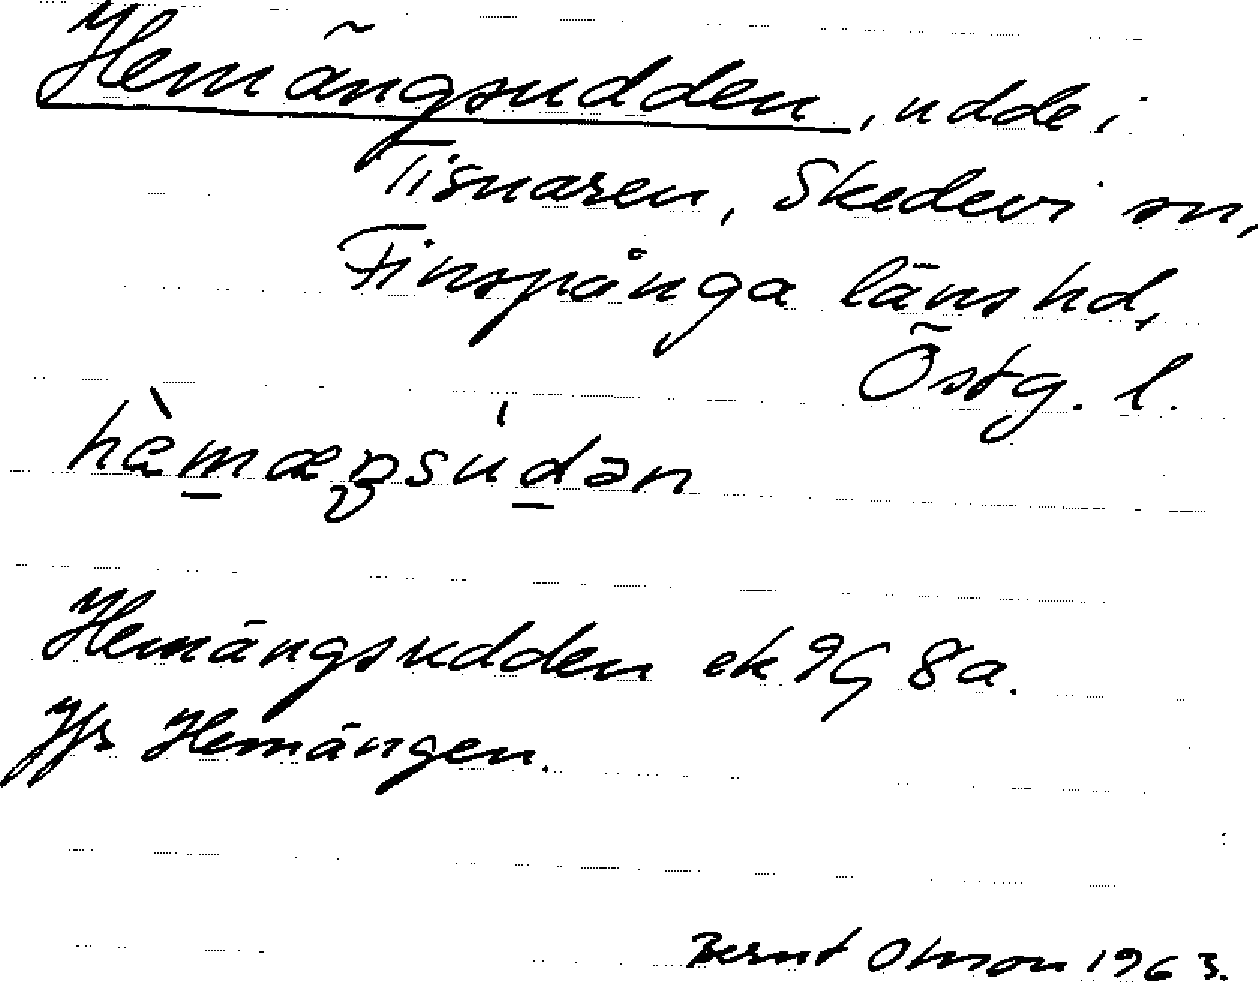 Hemängsudden, udde i
Tisnaren, Skedevi sn,
Finspånga läns hd,
Östg. l.
hæ̀mæŋsúdən
Hemängsudden ek 9G 8a.
Jfr Hemängen.
Bernt Olsson 1963.